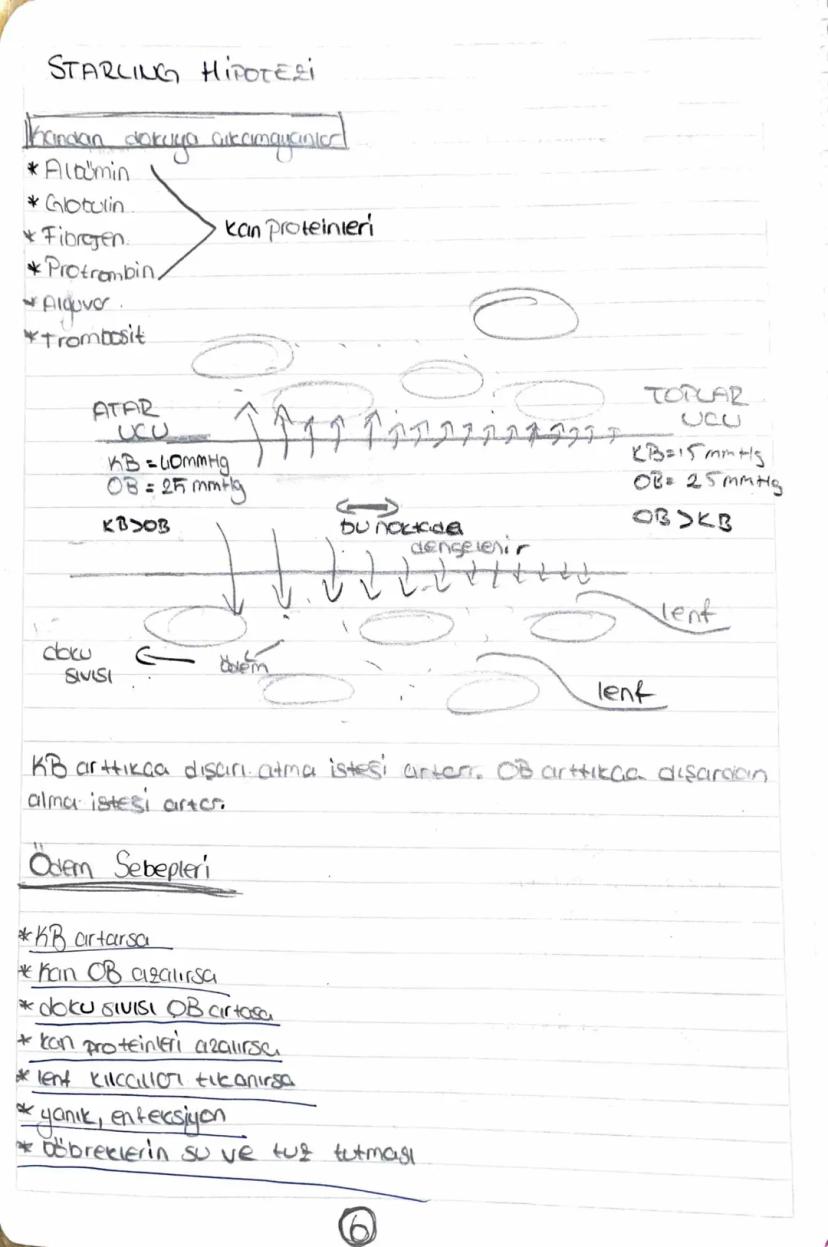 STARLING HİPOTEZİ
kandan dokuya çıkamayanlar
* Albümin
* Globulin
* Fibrojen
* Protrombin
kan proteinleri
* Alyuvar
* Trombosit
ATAR
UCU
KB = 40mmHg
OB = 25 mmHg
KB>OB
TOPLAR
UCU
KB=15 mmHg
OB= 25mmHg
OB>KB
bu noktada
dengelenir
lenf
doku
sıvısı
ödem
lenf
KB arttıkça dışarı atma isteği artar. OB arttıkça dışardan
alma isteği artar.
Ödem Sebepleri
* KB artarsa
* Kan OB azalırsa
* doku sıvısı OB artasa
* kan proteinleri azalırsa
* lenf kılcalları tıkanırsa
* yanık, enfeksiyon
* Böbreklerin su ve tuz tutması
6